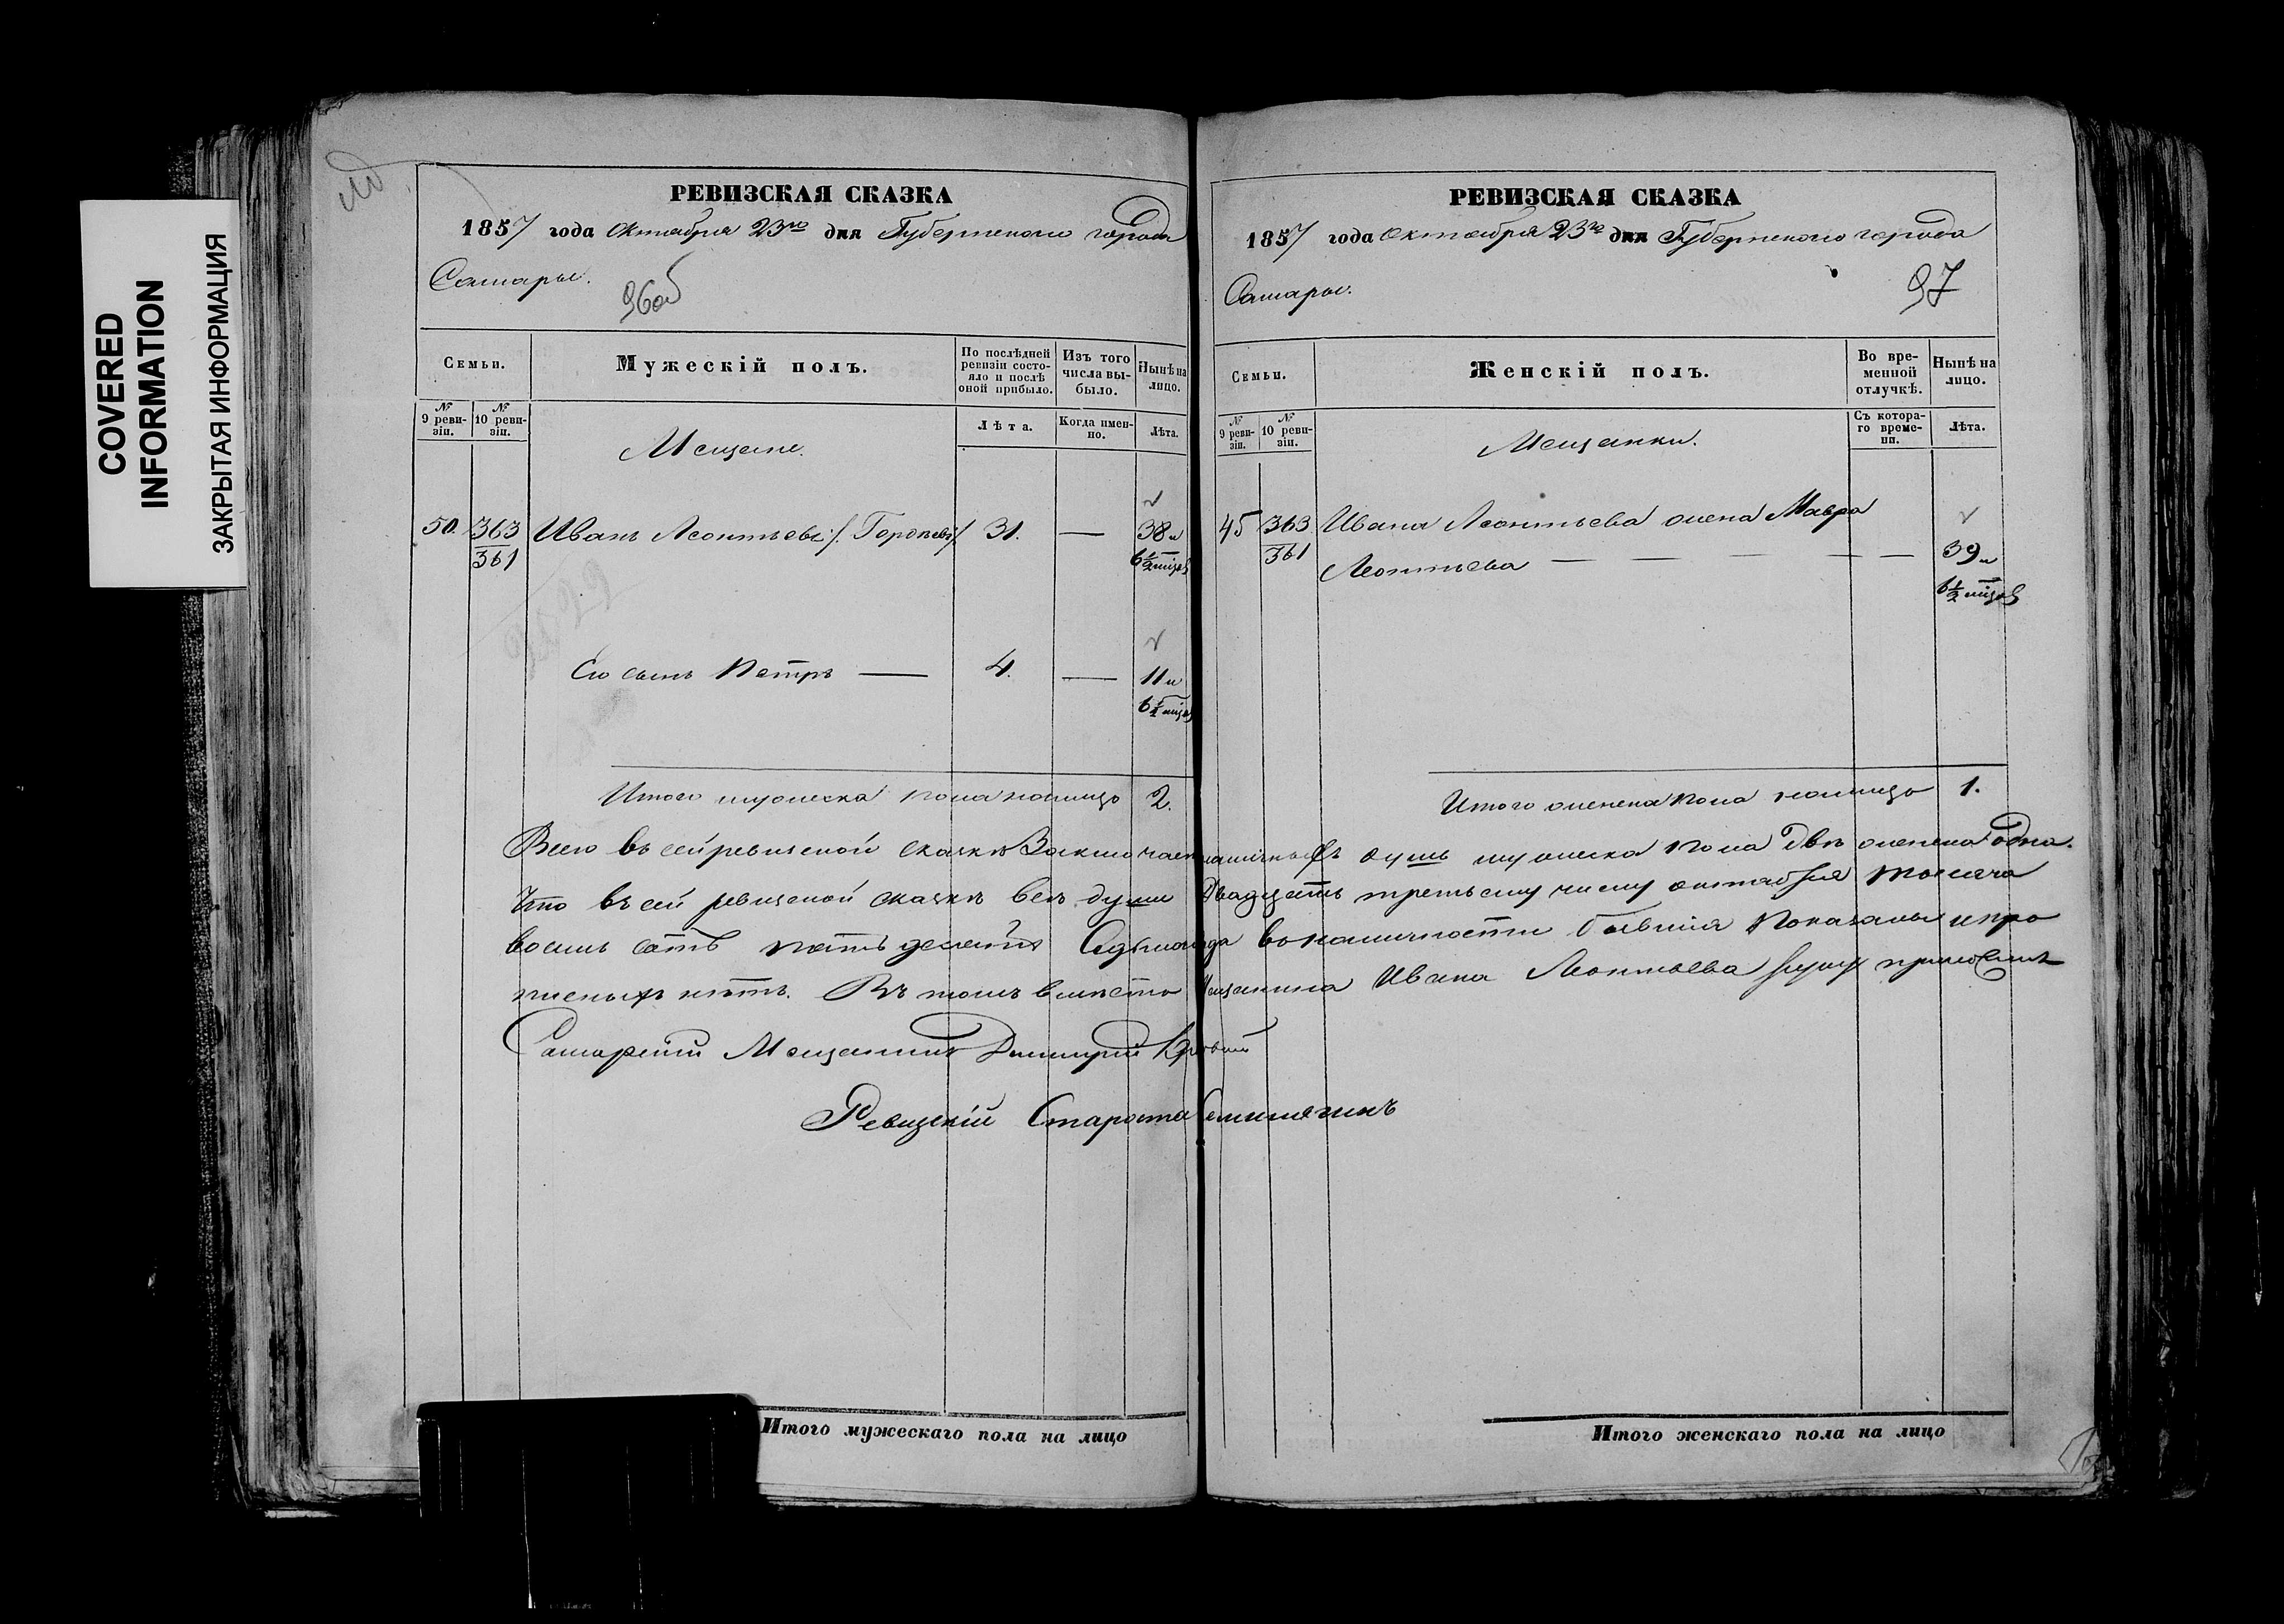 COVERED
INFORMATION
ЗАКРЫТАЯ ИНФОРМАЦИЯ
РЕВИЗСКАЯ СКАЗКА
1857 года Октября 23го дня Губернского города
Самары.
96об
Семьи.
Мужескій полъ.
По послѣдней ревизіи состояло и послѣ оной прибыло.
Изъ того числа выбыло.
Нынѣ на лицо.
№ 9 ревизіи.
№ 10 ревизіи.
Мещане.
Лѣта.
Когда именно.
Лѣта.
50. 363 Иванъ Леонтьевъ /. 31. — 38 и
361 6½ мѣся
Его сынъ Петръ — 4. — 11 и
6½ мѣся
Итого мужеска пола налицо 2.
РЕВИЗСКАЯ СКАЗКА
1857 года Октября 23го дня Губернского города
Самары.
97
Семьи.
Женскій полъ.
Во временной отлучкѣ.
Нынѣ на лицо.
№ 9 ревизіи.
№ 10 ревизіи.
Мещанки.
Съ котораго времени.
Лѣта.
45 363 Ивана Леонтьева жена Мавра
361 Леонтьева — — — — — 39 и
6½ мѣся
Итого женска пола налицо 1.
Всего въ сей ревизской сказкѣ Заключает наличныхъ душъ мужеска пола двѣ женска одна.
Что въ сей ревизской сказкѣ всѣ души двадцать третьему числу октября тысяча
восемь сотъ пятьдесятъ Седьмаго года в наличности бывшія показаны и про
писныхъ нѣтъ. Въ томъ вмѣсто мещанина Ивана Леонтьева руку приложилъ
Самарскій Мещанинъ Димитрій
Ревизскій Староста
Итого мужескаго пола на лицо
Итого женскаго пола на лицо